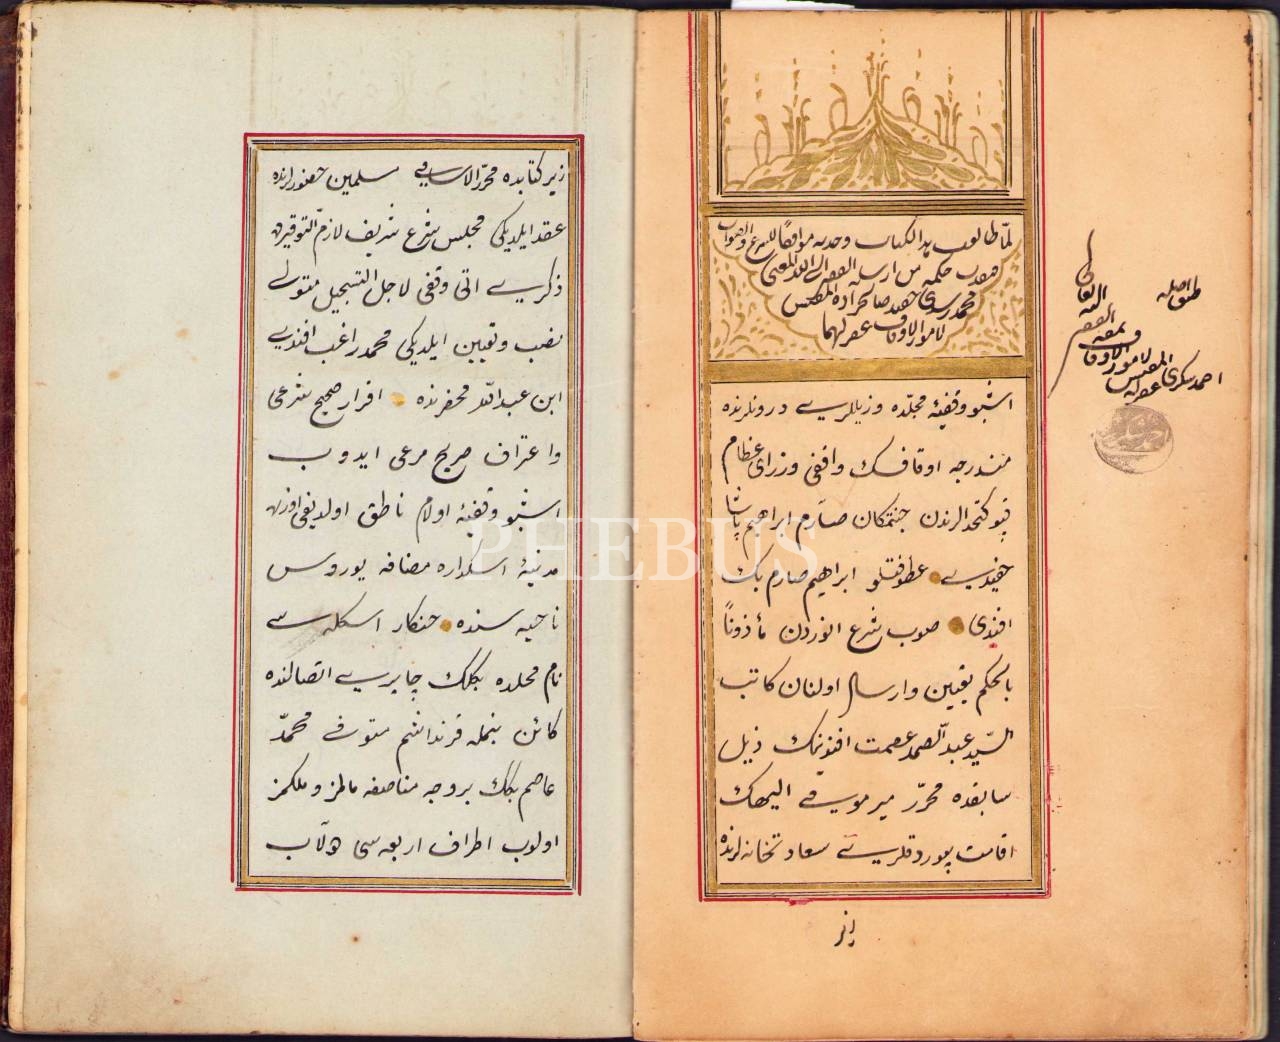 لما طالعت هذا الكتاب وجدته موافقا للشرع والصواب
محمد رشدى حفيد صالحزاده المفتش
لامور الاوقاف عفى لهما
طبق اصله
الفقير
المفتش لامور الاوقاف
احمد شكرى عفى له
اشبو وقفیهٔ مجلده و زیللریی درونلرنده
مندرجه اوقافك واقفی وزرای عظام
قپو كتخدالرندن جنتمكان صارم ابراهیم پاشا
حفیدی عطوفتلو ابراهیم صارم بك
افندی صوب شرع انوردن مأذوناً
بالحكم تعیین و ارسال اولنان كاتب
السّید عبد الصمد عصمت افندینك ذیل
سابقده محرّر میر مومی الیهك
اقامت بیوردقلری سعادتخانه لرنده
زیر
زیر كتابده محرّر الاسامی مسلمین حضورلرنده
عقد ایلدیكی مجلس شرع شریف لازم التوقیرده
ذكری اتی وقفی لاجل التسجیل متولی
نصب و تعیین ایلدیكی محمد راغب افندی
ابن عبدالله محضرنده اقرار صحیح شرعی
و اعتراف صریح مرعی ایدوب
اشبو وقفیهٔ اولام ناطق اولدیغی اوزره
مدینهٔ اسكداره مضافه یوروس
ناحیه سنده حنكار اسكله سی
نام محلده بكلك چایری اتصالنده
كائن بنمله قرنداشم متوفی محمّد
عاصم بكك بروجه مناصفه مالمز و ملكمز
اولوب اطراف اربعه سی دولاب
PHEBUS